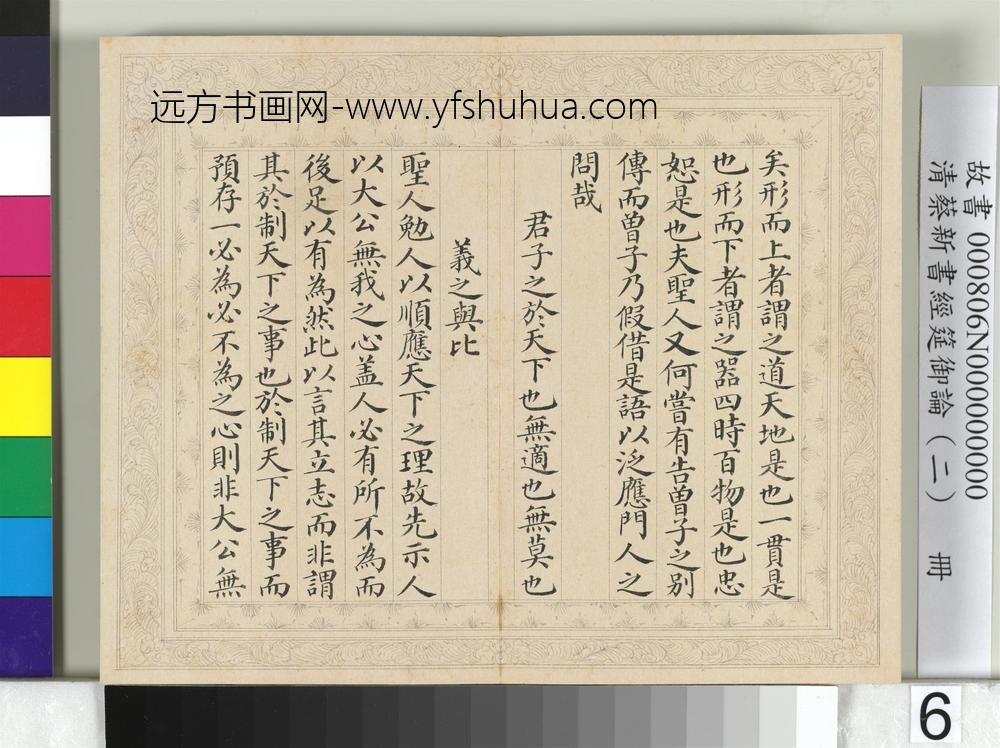 远方书画网-www.yfshuhua.com
矣形而上者謂之道天地是也一貫是
也形而下者謂之器四時百物是也忠
恕是也夫聖人又何嘗有告曾子之别
傳而曾子乃假借是語以泛應門人之
問哉
君子之於天下也無適也無莫也
義之與比
聖人勉人以順應天下之理故先示人
以大公無我之心盖人必有所不為而
後足以有為然此以言其立志而非謂
其於制天下之事也於制天下之事而
預存一必為必不為之心則非大公無
故書 000806N000000000
清蔡新書經筵御論（二） 冊
6